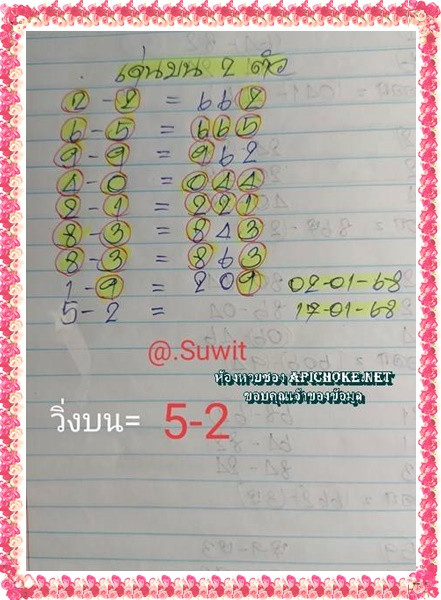 เด่นบน 2 ตัว
2-2 = 662
6-5 = 665
9-9 = 962
4-0 = 044
2-1 = 221
8-3 = 843
8-3 = 863
1-9 = 209 02-01-68
5-2 = 17-01-68
@.Suwit
ห้องหวยซอง APICHOKE.NET
ขอบคุณเจ้าของข้อมูล
วิ่งบน= 5-2